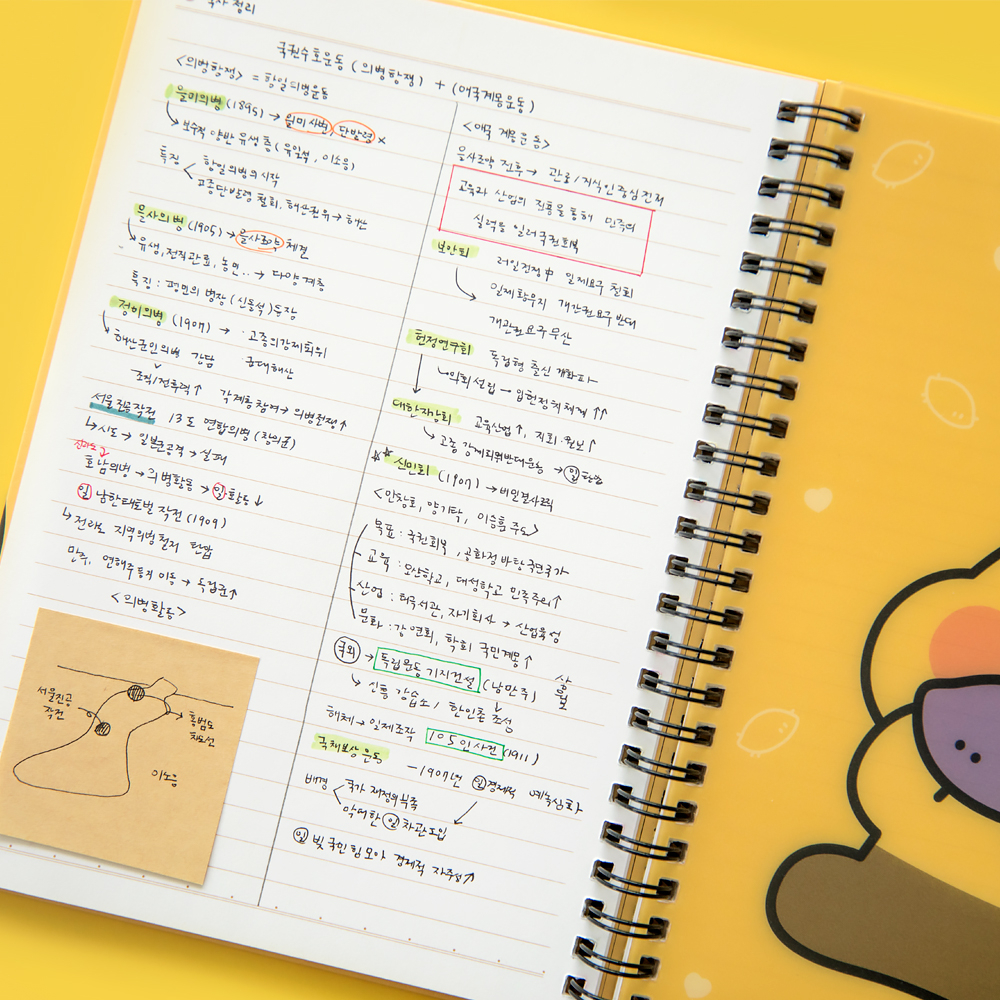 국사 정리
국권수호운동 (의병항쟁) + (애국계몽운동)
<의병항쟁> = 항일의병운동
을미의병 (1895) → 을미사변, 단발령 x
보수적 양반 유생층 (유인석, 이소응)
특징 < 항일의병의 시작
고종단발령 철회, 해산권유 → 해산
을사의병 (1905) → 을사조약 체결
유생, 전직관료, 농민.. → 다양계층
특징 : 평민의병장 (신돌석) 등장
정미의병 (1907) → · 고종의강제퇴위
해산군인의병 가담 군대해산
조직/전투력↑ 각계층참여 → 의병전쟁↑
서울진공작전 13도 연합의병 (창의군)
↳ 시도 → 일본군공격 → 실패
호남의병 → 의병활동 → 일 활동↓
일 남한대토벌 작전 (1909)
↳ 전라도 지역의병철저 탄압
만주, 연해주등지 이동 → 독립군↑
<의병활동>
서울진공
작전
홍범도
차도선
이소응
<애국 계몽운동>
을사조약 전후 → 관료/지식인중심전개
교육과 산업의 진흥을통해 민족의
실력을 길러국권회복
보안회 러일전쟁中 일제요구 철회
일제황무지 개간권요구 반대
개간권요구무산
헌정연구회 독립협 출신 개화파
↳ 의회설립 → 입헌정치체계↑↑
대한자강회 교육산업↑, 지회·월보↑
↳ 고종 강제퇴위반대운동 → 일 탄압
☆☆ 신민회 (1907) → 비밀결사조직
<안창호, 양기탁, 이승훈주도>
목표 : 국권회복, 공화정바탕국민국가
교육 : 오산학교, 대성학교 민족주의↑
산업 : 태극서관, 자기회사 → 산업육성
문화 : 강연회, 학회 국민계몽↑
국외 → 독립운동기지건설 (남만주) 삼원보
↳ 신흥강습소 / 한인촌 조성
해체 → 일제조작 105인사건 (1911)
국채보상운동 - 1907년 일 경제적 예속심화
배경 < 국가 재정의부족
막대한 일 차관도입
일 빚 국민힘모아 경제적 자주성↑